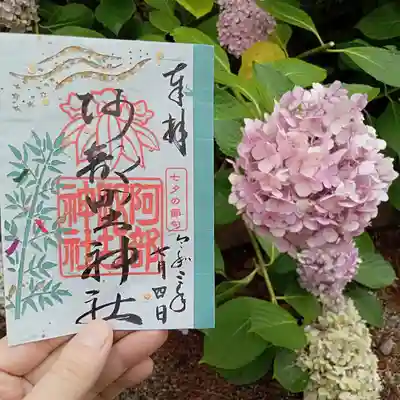 奉拝
七夕の節句
令和三年
七月四日
阿部野神社
阿部野神社